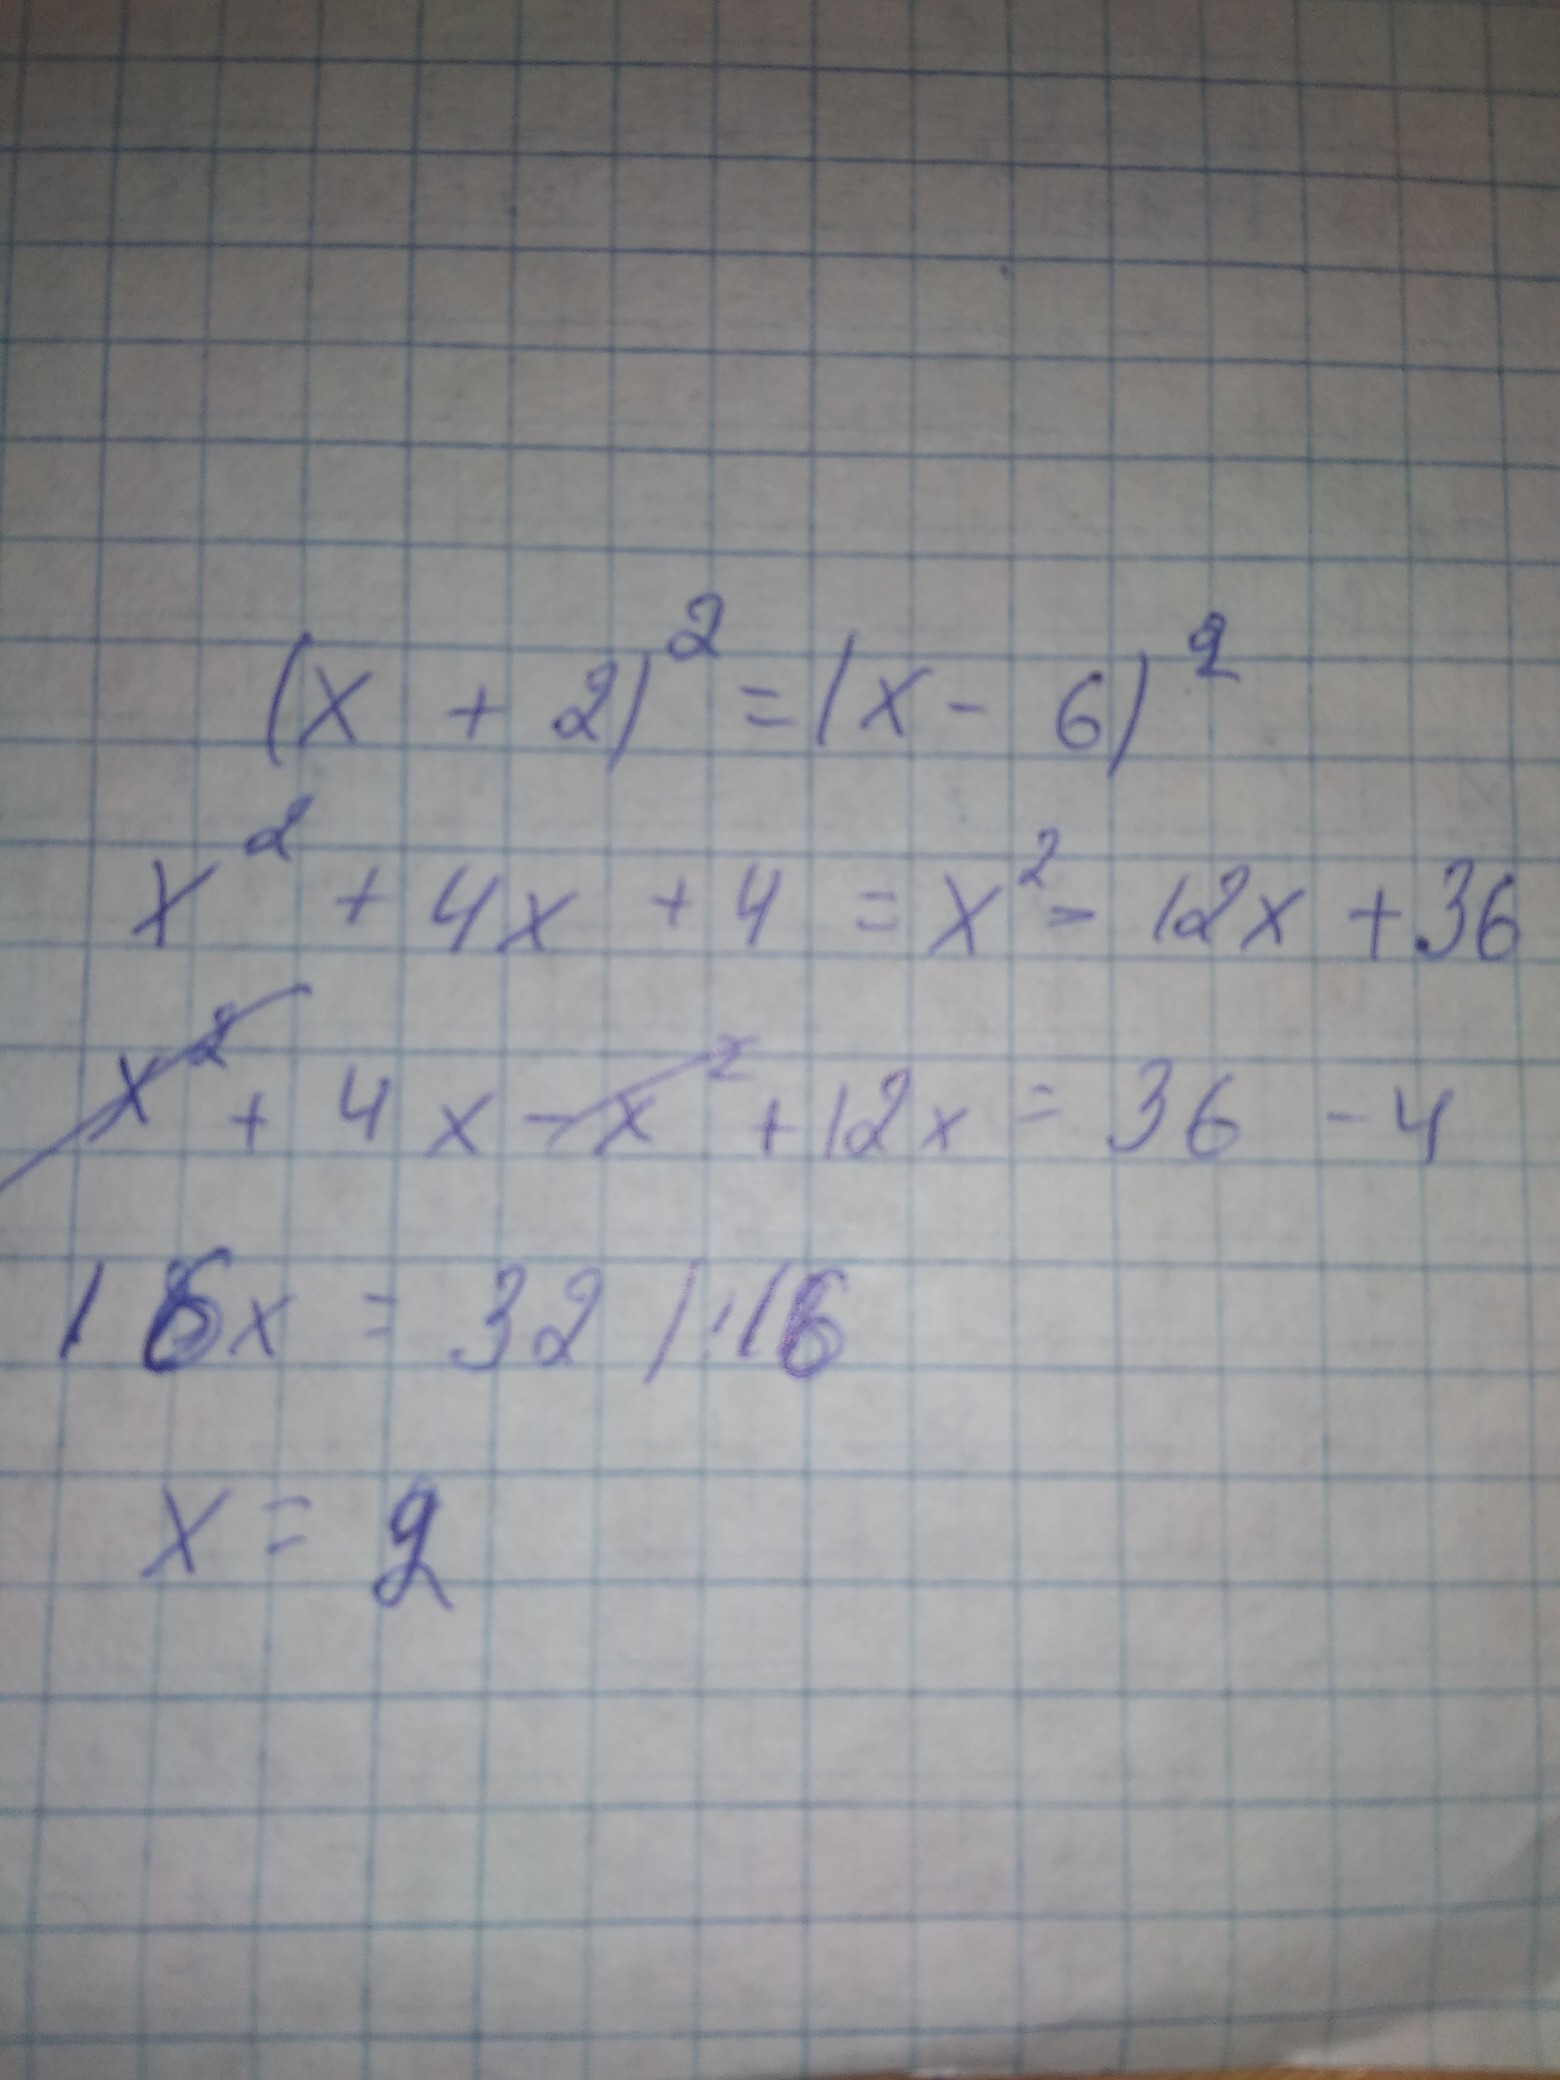 (x + 2)² = (x - 6)²
x² + 4x + 4 = x² - 12x + 36
x² + 4x - x² + 12x = 36 - 4
16x = 32 | :16
x = 2